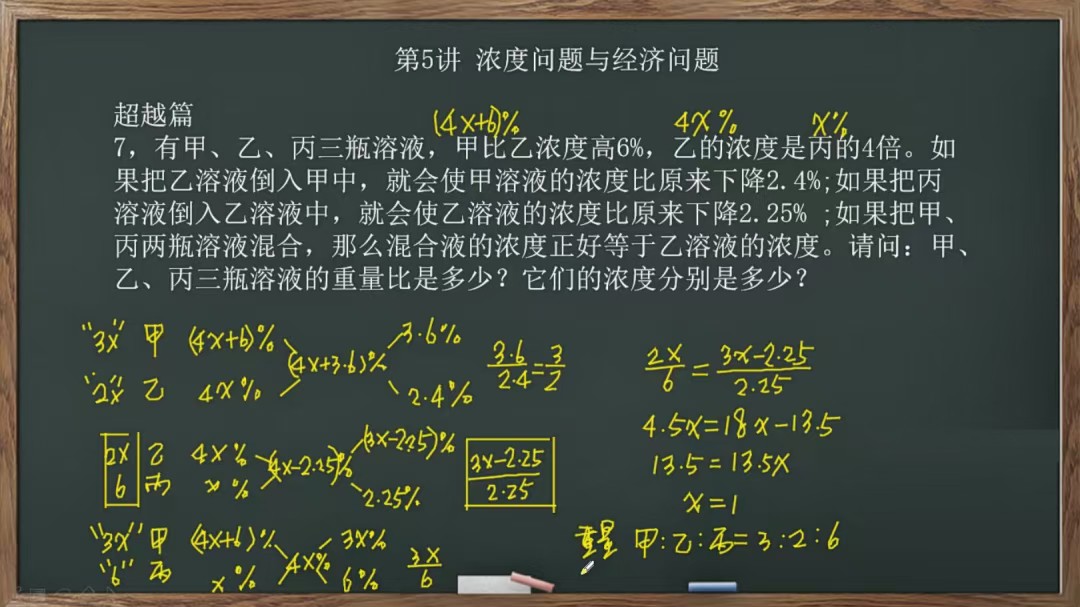 第5讲 浓度问题与经济问题
超越篇
(4x+6)% 4x% x%
7，有甲、乙、丙三瓶溶液，甲比乙浓度高6%，乙的浓度是丙的4倍。如
果把乙溶液倒入甲中，就会使甲溶液的浓度比原来下降2.4%;如果把丙
溶液倒入乙溶液中，就会使乙溶液的浓度比原来下降2.25% ;如果把甲、
丙两瓶溶液混合，那么混合液的浓度正好等于乙溶液的浓度。请问：甲、
乙、丙三瓶溶液的重量比是多少？它们的浓度分别是多少？
"3x" 甲 (4x+6)% (4x+3.6)% 3.6%
"2x" 乙 4x% 2.4%
3.6/2.4=3/2
2x 乙 4x% (4x-2.25)% (3x-2.25)%
6 丙 x% 2.25%
3x-2.25/2.25
"3x" 甲 (4x+6)% 4x% 3x%
"6" 丙 x% 6%
3x/6
2x/6=3x-2.25/2.25
4.5x=18x-13.5
13.5=13.5x
x=1
重量 甲:乙:丙=3:2:6